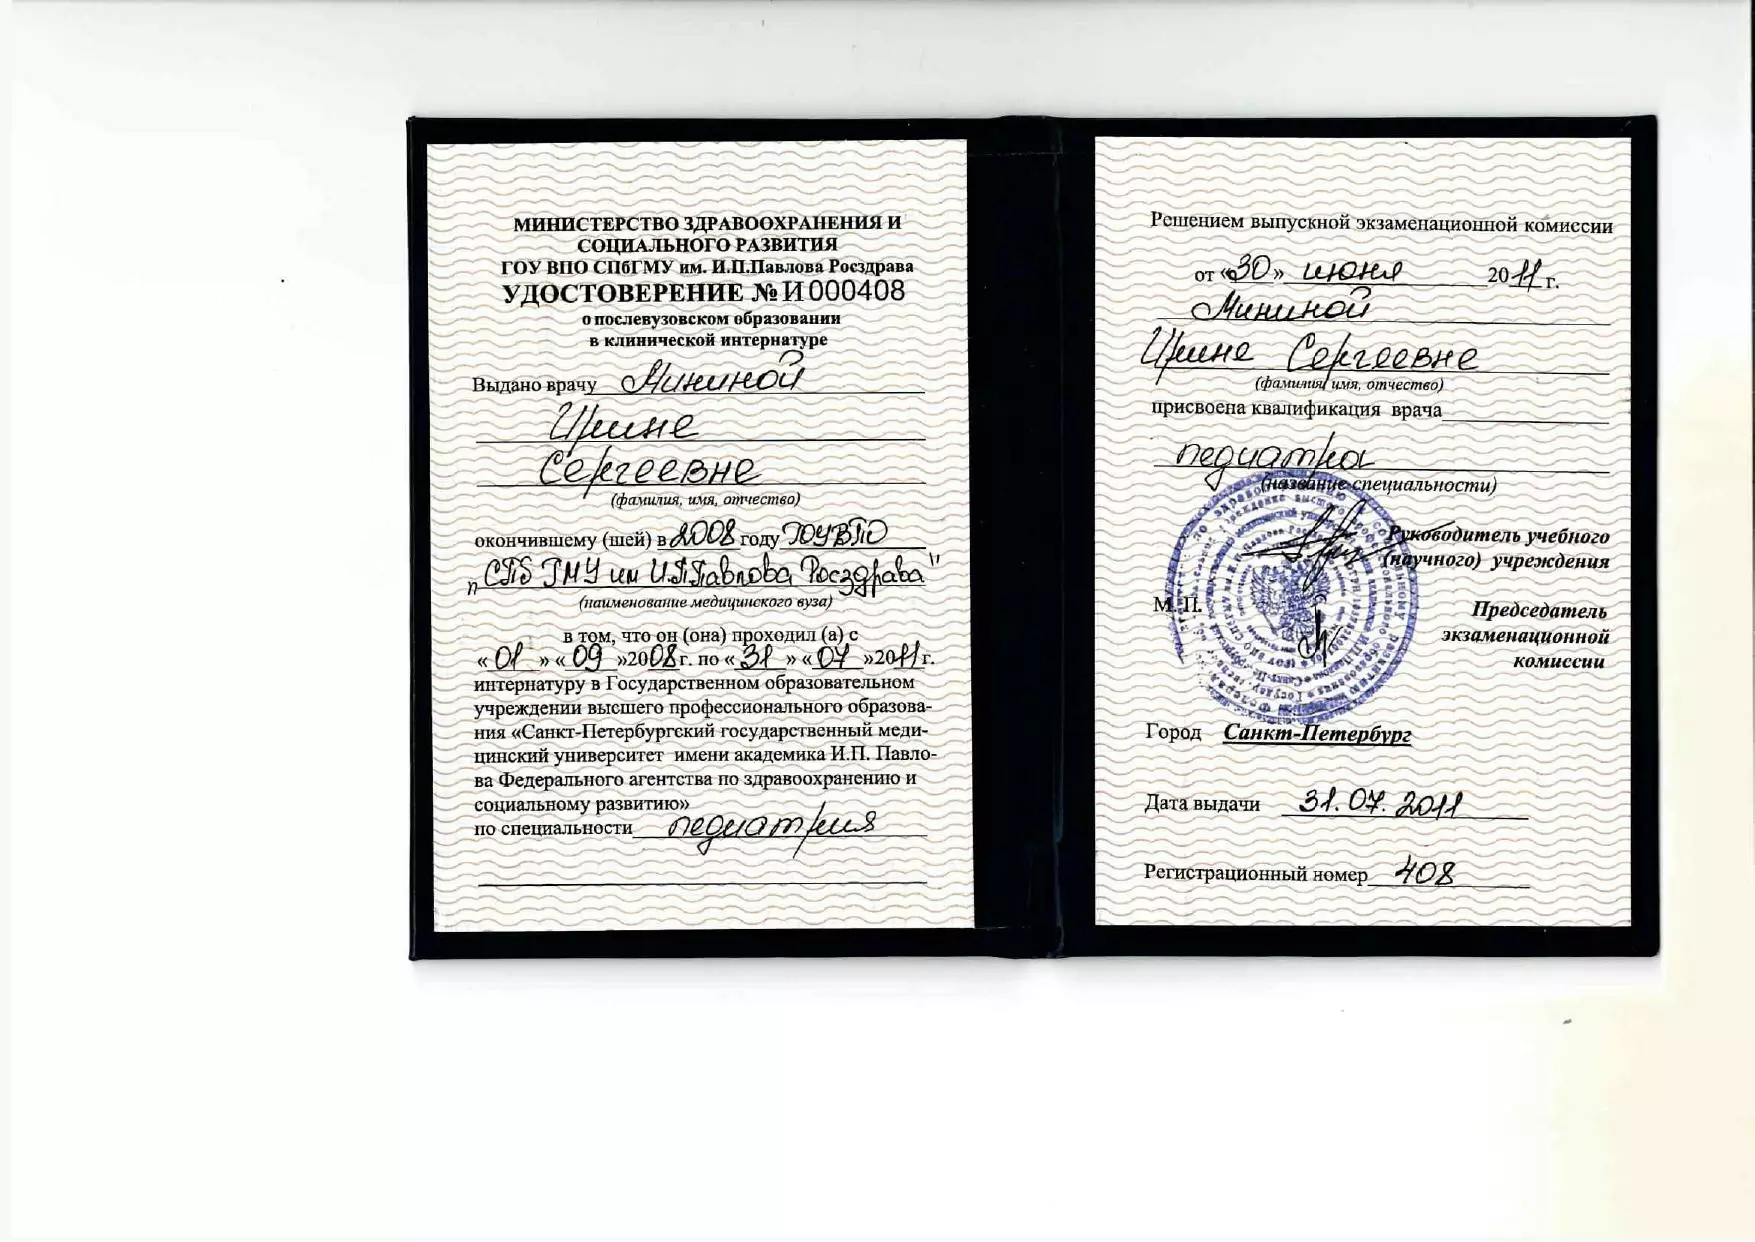 МИНИСТЕРСТВО ЗДРАВООХРАНЕНИЯ И
СОЦИАЛЬНОГО РАЗВИТИЯ
ГОУ ВПО СПбГМУ им. И.П.Павлова Росздрава
УДОСТОВЕРЕНИЕ № И 000408
о послевузовском образовании
в клинической интернатуре
Выдано врачу Мининой
Ирине
Сергеевне
(фамилия, имя, отчество)
окончившему (шей) в 2008 году ГОУВПО
"СПб ГМУ им И.П.Павлова Росздрава"
(наименование медицинского вуза)
в том, что он (она) проходил (а) с
« 01 » « 09 »2008 г. по « 31 » « 07 »2011 г.
интернатуру в Государственном образовательном
учреждении высшего профессионального образова-
ния «Санкт-Петербургский государственный меди-
цинский университет имени академика И.П. Павло-
ва Федерального агентства по здравоохранению и
социальному развитию»
по специальности педиатрия
Решением выпускной экзаменационной комиссии
от «30» июня 2011 г.
Мининой
Ирине Сергеевне
(фамилия, имя, отчество)
присвоена квалификация врача
педиатра
(название специальности)
Руководитель учебного
(научного) учреждения
М.П.
Председатель
экзаменационной
комиссии
Город Санкт-Петербург
Дата выдачи 31.07.2011
Регистрационный номер 408